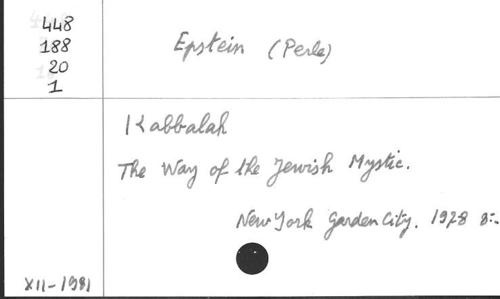 448
188
20
1
Epstein (Perle)
Kabbalah
The Way of the Jewish Mystic.
New York Garden City. 1978 8:-
XII-1981